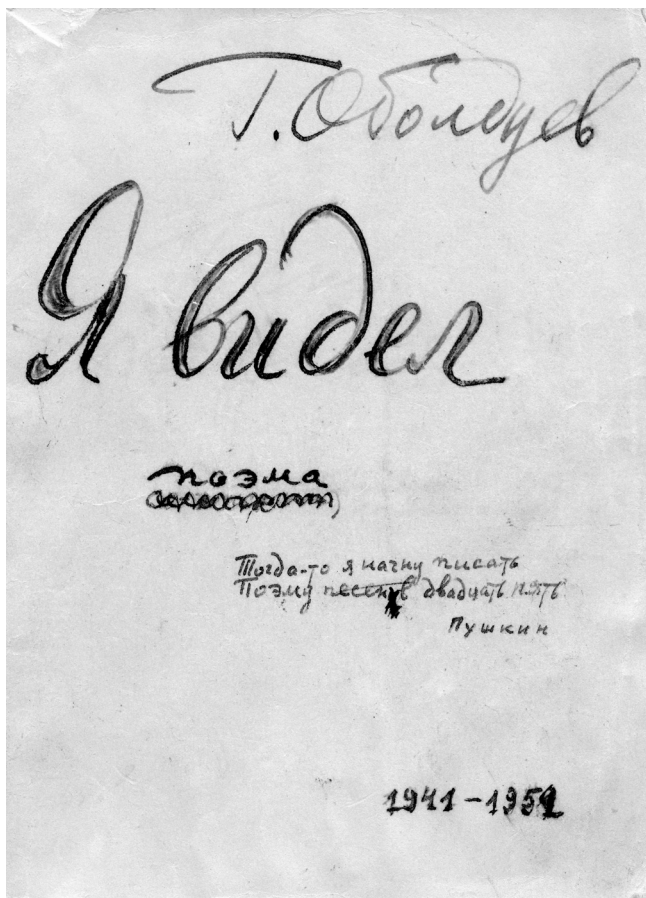 Г. Оболдуев
Я видел
поэма
Тогда-то я начну писать
Поэму песен в двадцать пять
Пушкин
1941–1952